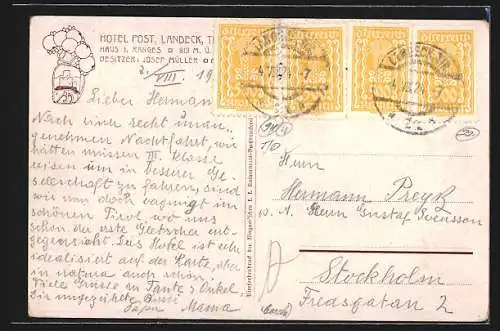 HOTEL POST, LANDECK, T
HAUS I. RANGES 813 M. Ü.
BESITZER: JOSEF MÜLLER
2. VIII. 19
Lieber Hermann
Nach einer recht unan-
genehmen Nachtfahrt, wir
hätten müssen III. Klasse
reisen um in besserer Ge-
sellschaft zu fahren, sind
wir nun doch vergnügt im
schönen Tirol wo uns
schon der erste Gletscher ent-
gegensieht. Das Hotel ist sehr
idealisiert auf der Karte, aber
in natura auch schön.
Viele Grüsse an Tante & Onkel,
Papa Mama
Österreich
Österreich
Österreich
Österreich
Herrn
Hermann
Herrn Gustaf Svensson
Stockholm
Fredsgatan 2